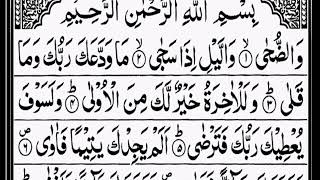 بِسْمِ اللّٰهِ الرَّحْمٰنِ الرَّحِيْمِ
وَالضُّحٰى ۙ﴿۱﴾ وَالَّيْلِ اِذَا سَجٰى ۙ﴿۲﴾ مَا وَدَّعَكَ رَبُّكَ وَمَا
قَلٰى ؕ﴿۳﴾ وَلَلْاٰخِرَةُ خَيْرٌ لَّكَ مِنَ الْاُوْلٰى ؕ﴿۴﴾ وَلَسَوْفَ
يُعْطِيْكَ رَبُّكَ فَتَرْضٰى ؕ﴿۵﴾ اَلَمْ يَجِدْكَ يَتِيْمًا فَاٰوٰى ۪﴿۶﴾